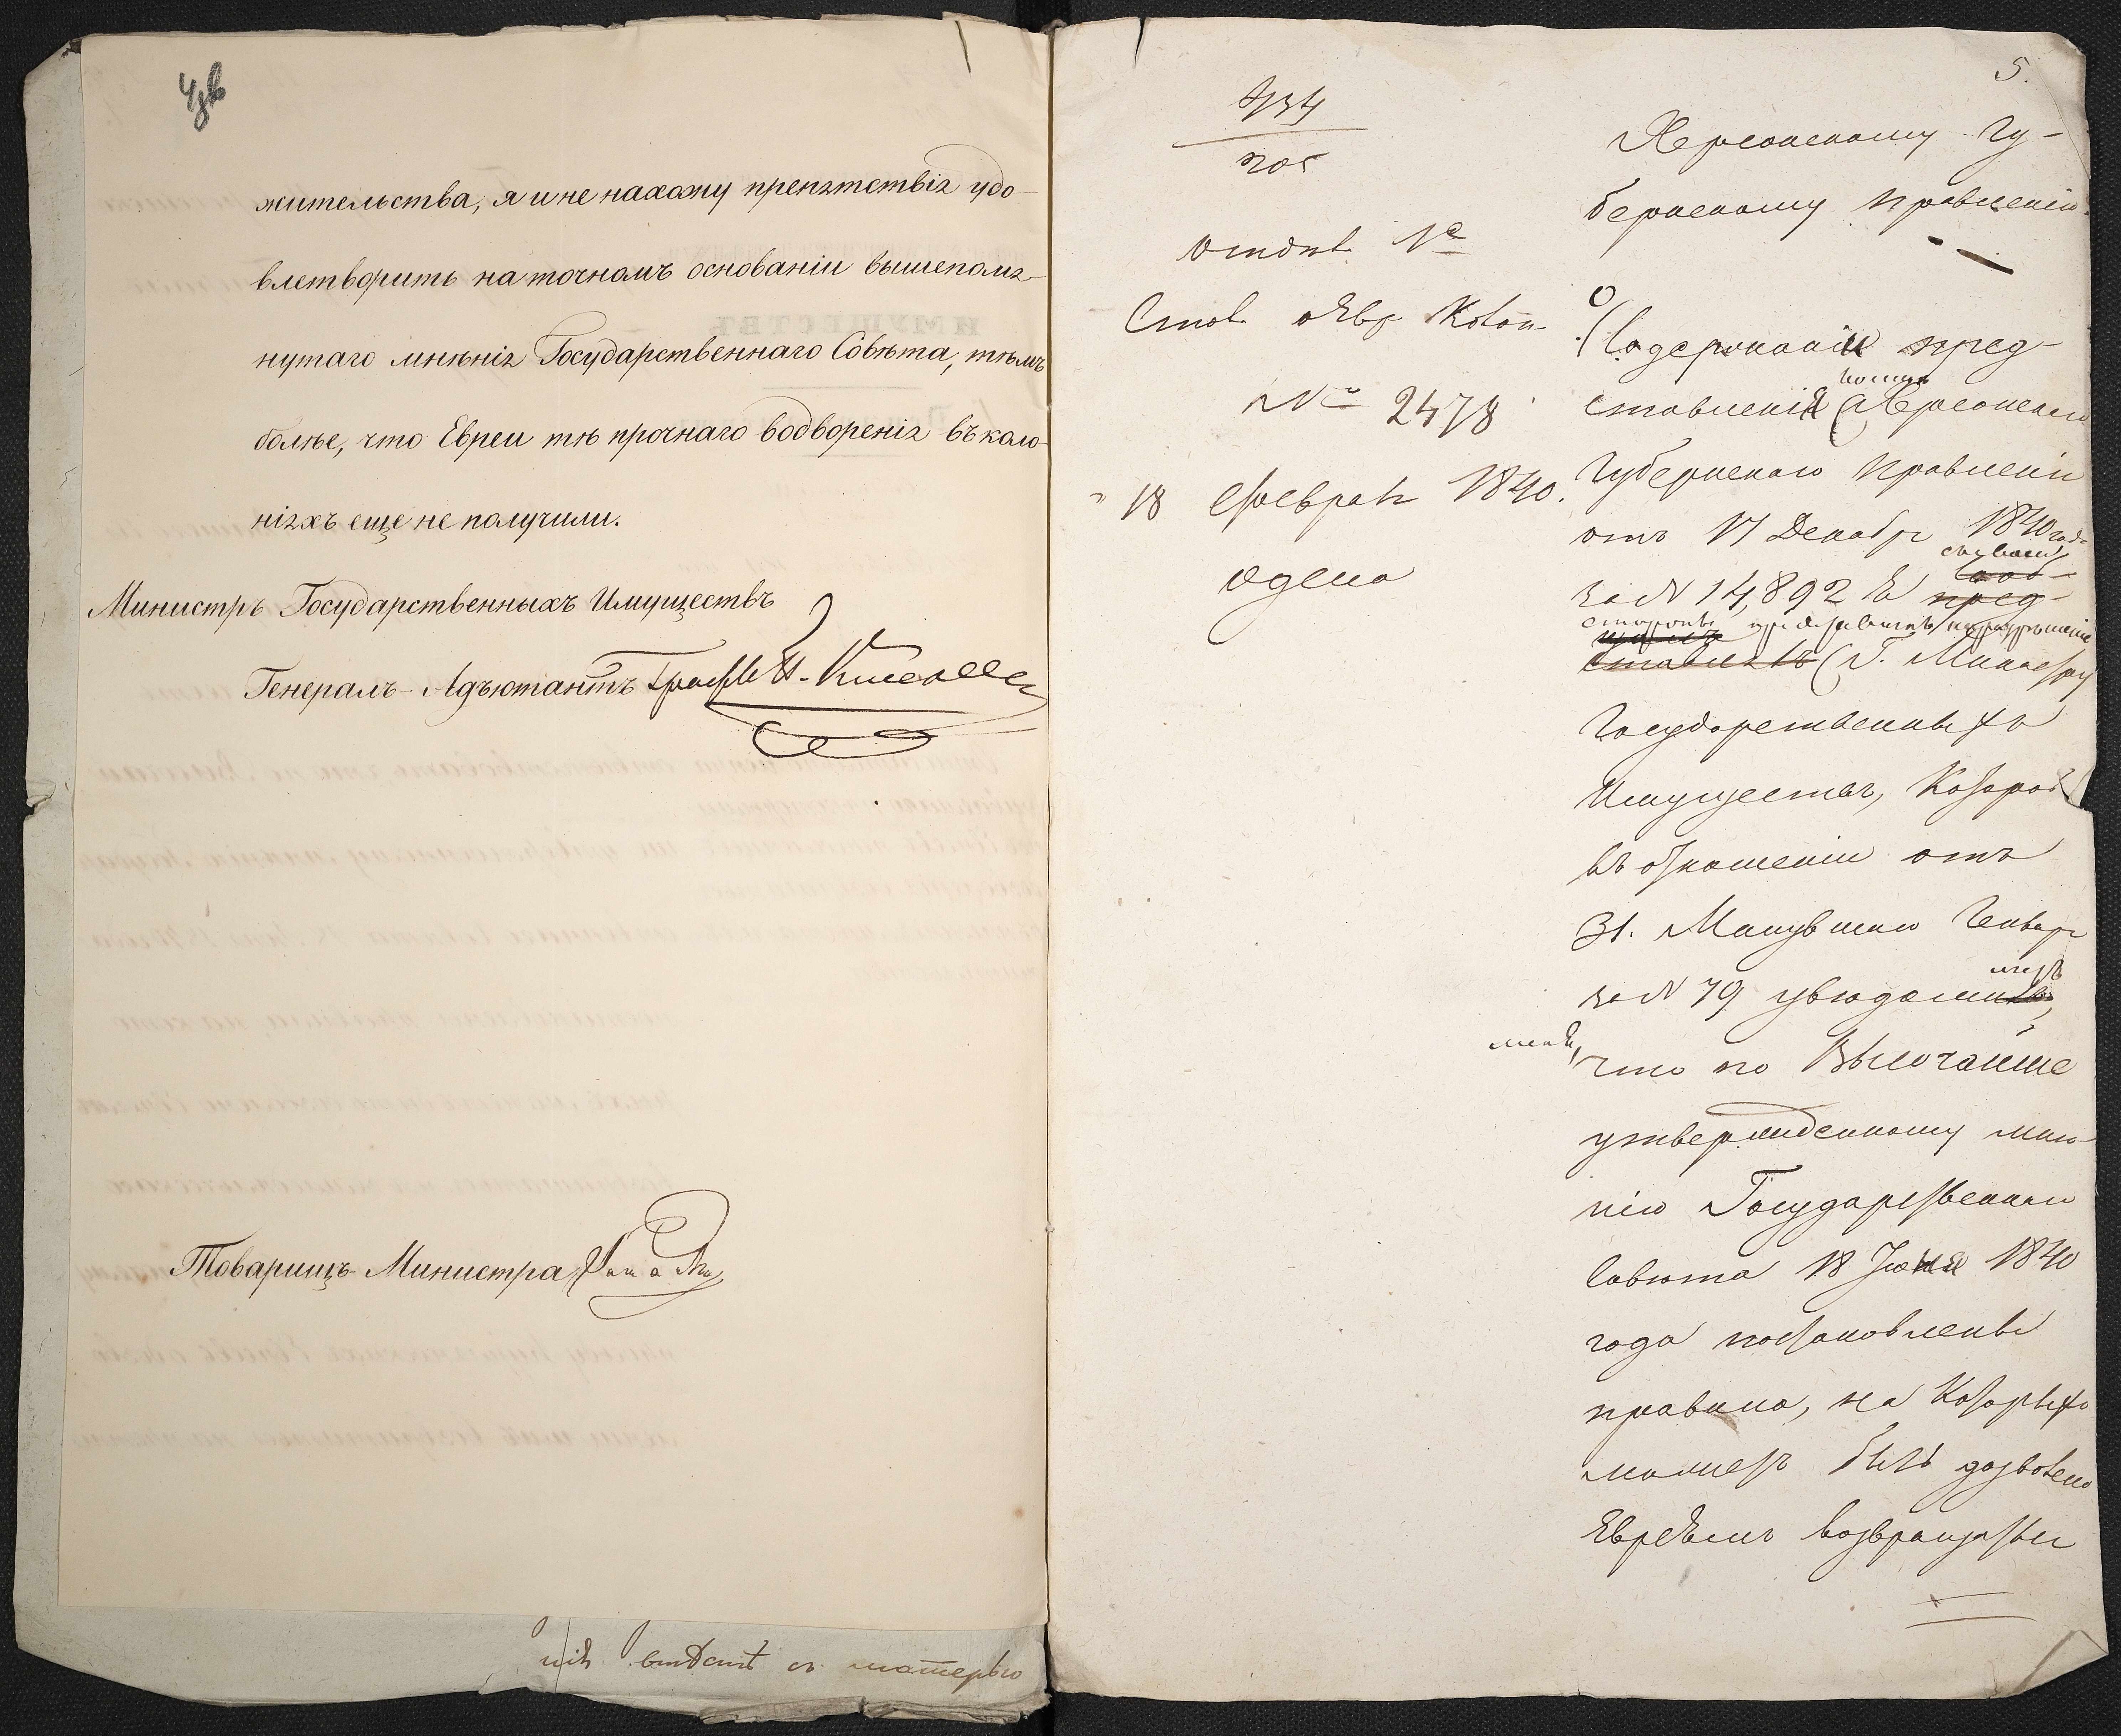 4об
жительства, я и не нахожу препятствія удо-
влетворить на точномъ основаніи вышепомя-
нутаго мнѣнія Государственнаго Совѣта, тѣмъ
болѣе, что Евреи тѣ прочнаго водворенія въ коло-
ніяхъ еще не получили.
Министръ Государственныхъ Имуществъ
Генералъ-Адъютантъ Графъ П. Киселевъ
Товарищъ Министра
нія вмѣстѣ съ матерью
5.
Отдѣл. 1е
Стол. о Евр. Колон.
№ 2478
18 Февраля 1840.
Одеса
Херсонскому Гу-
бернскому Правленію.
О
Содержаніи пред-
ставленія Херсонскаго
Губернскаго Правленія
отъ 17 Декабря 1840 года
за № 14,892 я
Г. Министру
Государственныхъ
Имуществъ, Который
въ отношеніи отъ
31. Минувшаго Генваря
за № 79 увѣдомилъ
меня,
что по Высочайше
утвержденному мнѣ-
нію Государственнаго
Совѣта 18 Іюня 1840
года постановлены
правила, на Которыхъ
можетъ быть дозволено
Евреямъ возвращаться